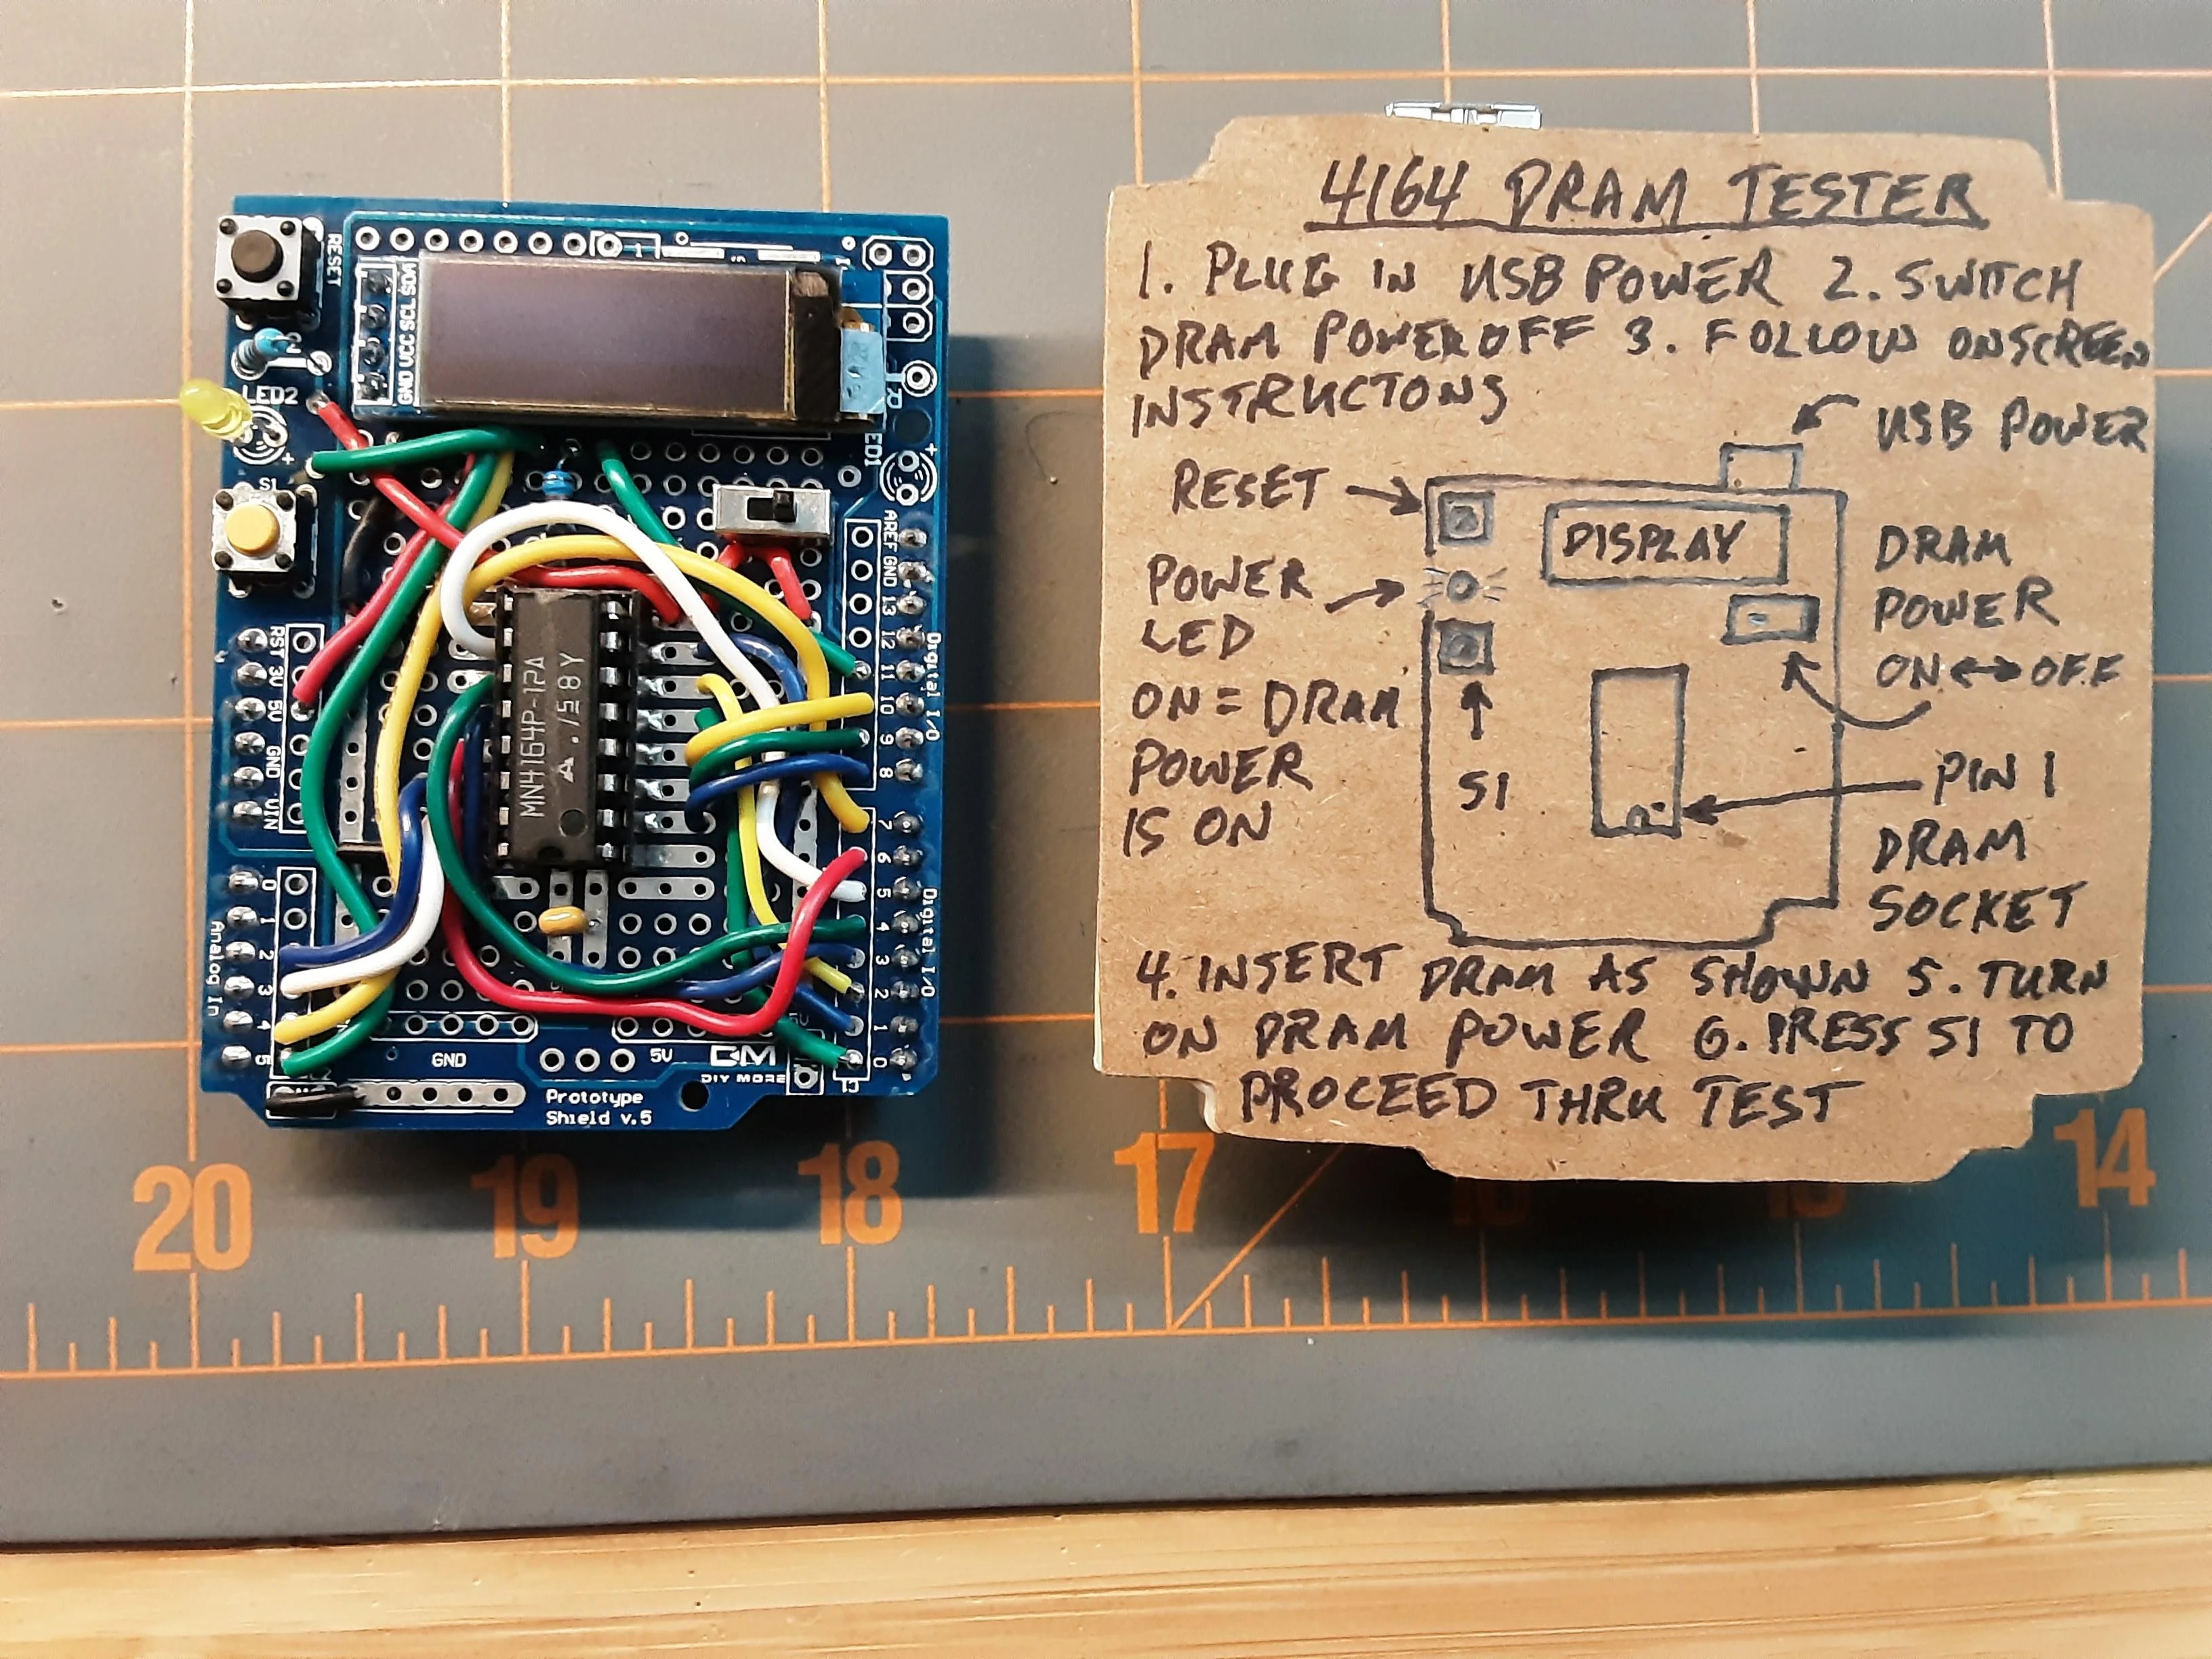 RESET
GND VCC SCL SDA
LED2
S1
MN4164P-12A
./58Y
AREF GND 13 12 11 10 9 8
7 6 5 4 3 2 1 0
Digital I/O
Digital I/O
RST 3V 5V GND VIN
0 1 2 3 4 5
Analog In
GND
5V
DIY MORE
Prototype
Shield v.5
4164 DRAM TESTER
1. PLUG IN USB POWER 2. SWITCH
DRAM POWER OFF 3. FOLLOW ONSCREEN
INSTRUCTONS
USB POWER
RESET
DISPLAY
POWER
LED
ON = DRAM
POWER
IS ON
S1
DRAM
POWER
ON ↔ OFF
PIN 1
DRAM
SOCKET
4. INSERT DRAM AS SHOWN 5. TURN
ON DRAM POWER 6. PRESS S1 TO
PROCEED THRU TEST
20 19 18 17 16 15 14